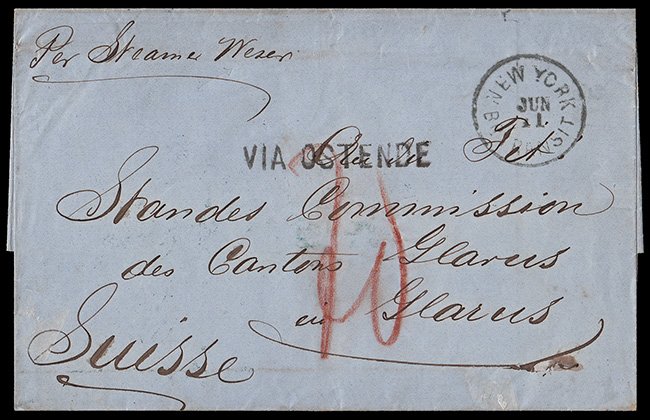 Per Steamer Weser
NEW YORK
JUN
11
BR. TRANSIT
VIA OSTENDE
Tit
Standes Commission
des Cantons Glarus
in Glarus
Suisse